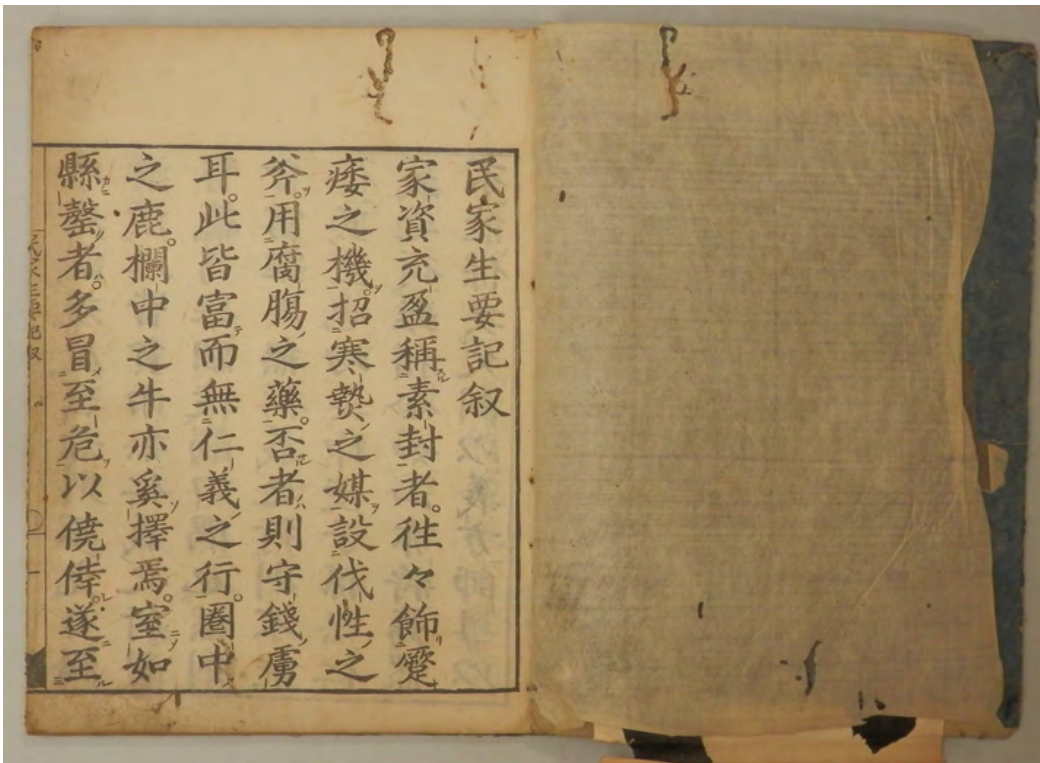 民家生要記叙
家資充盈稱素封者。往々飾蹷
痿之機。招寒𤍠之媒。設伐性之
斧。用腐腸之藥。否者則守錢虜
耳。此皆富而無仁義之行。圈中
之鹿。欄中之牛亦奚擇焉。室如
縣罄者。多冒至危以僥倖。遂至